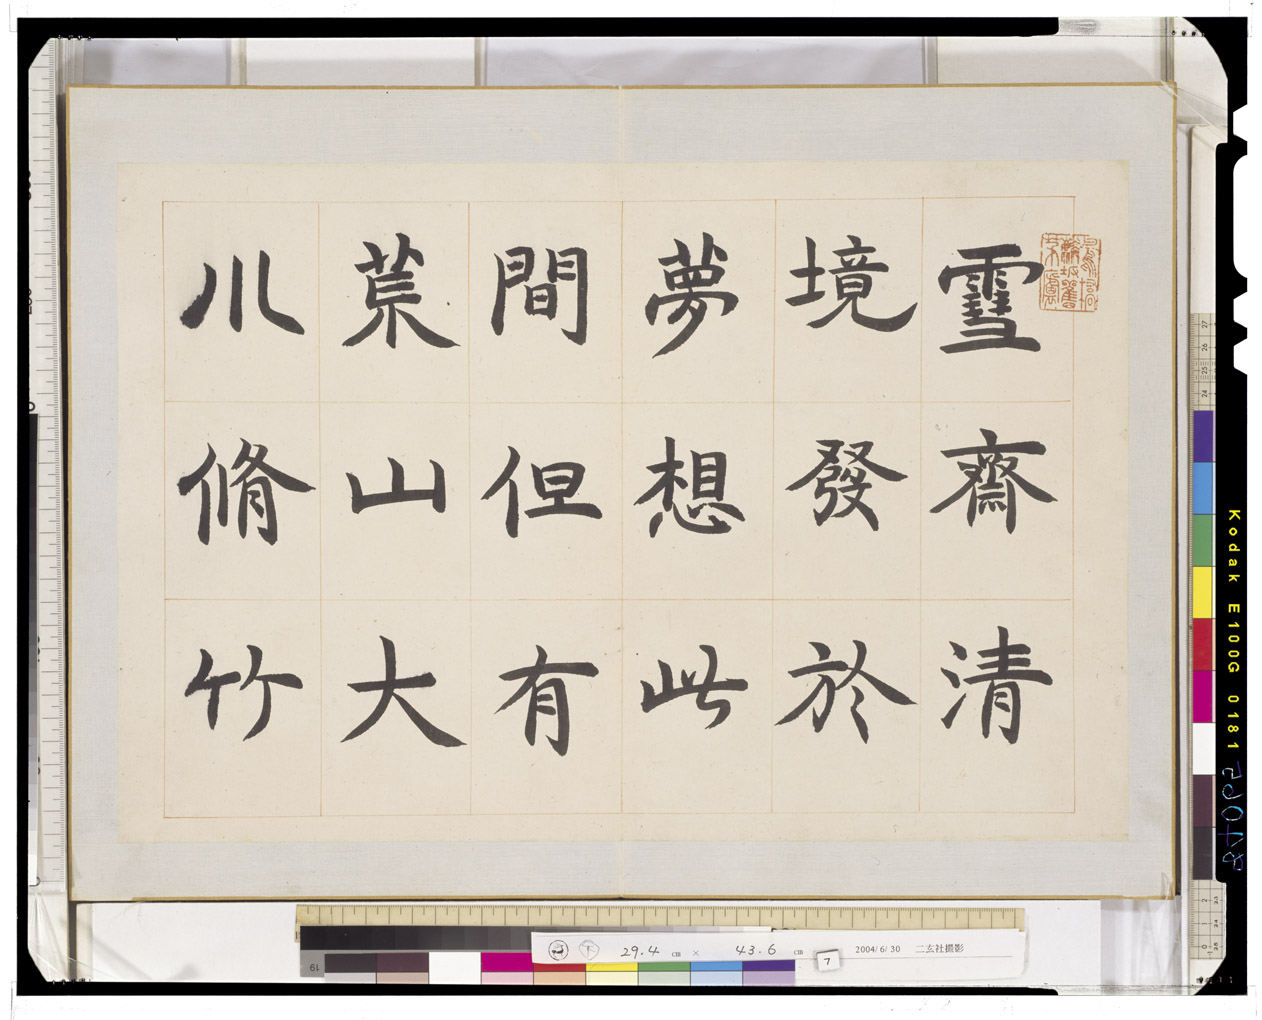 雪齋清
境發於
夢想此
間但有
荒山大
川脩竹
Kodak E100G 0181
29.4 cm × 43.6 cm
2004/6/30 二玄社撮影
7
19